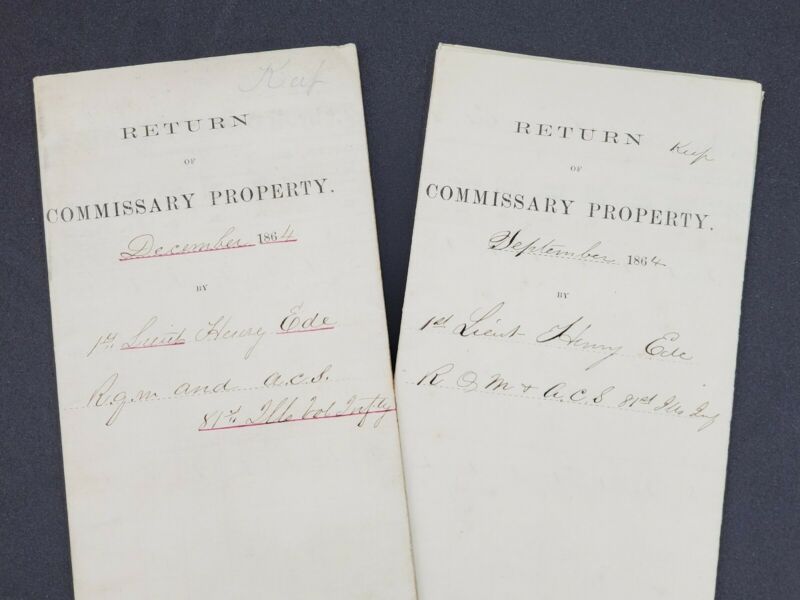 Keep
RETURN
OF
COMMISSARY PROPERTY.
December 1864
BY
1st. Lieut Henry Ede
R.q.m and a.c.s.
81st. Ills Vol Inft'y
RETURN
Keep
OF
COMMISSARY PROPERTY.
September 1864
BY
1st Lieut Henry Ede
R Q M & A.C.S 81st Ills Inf